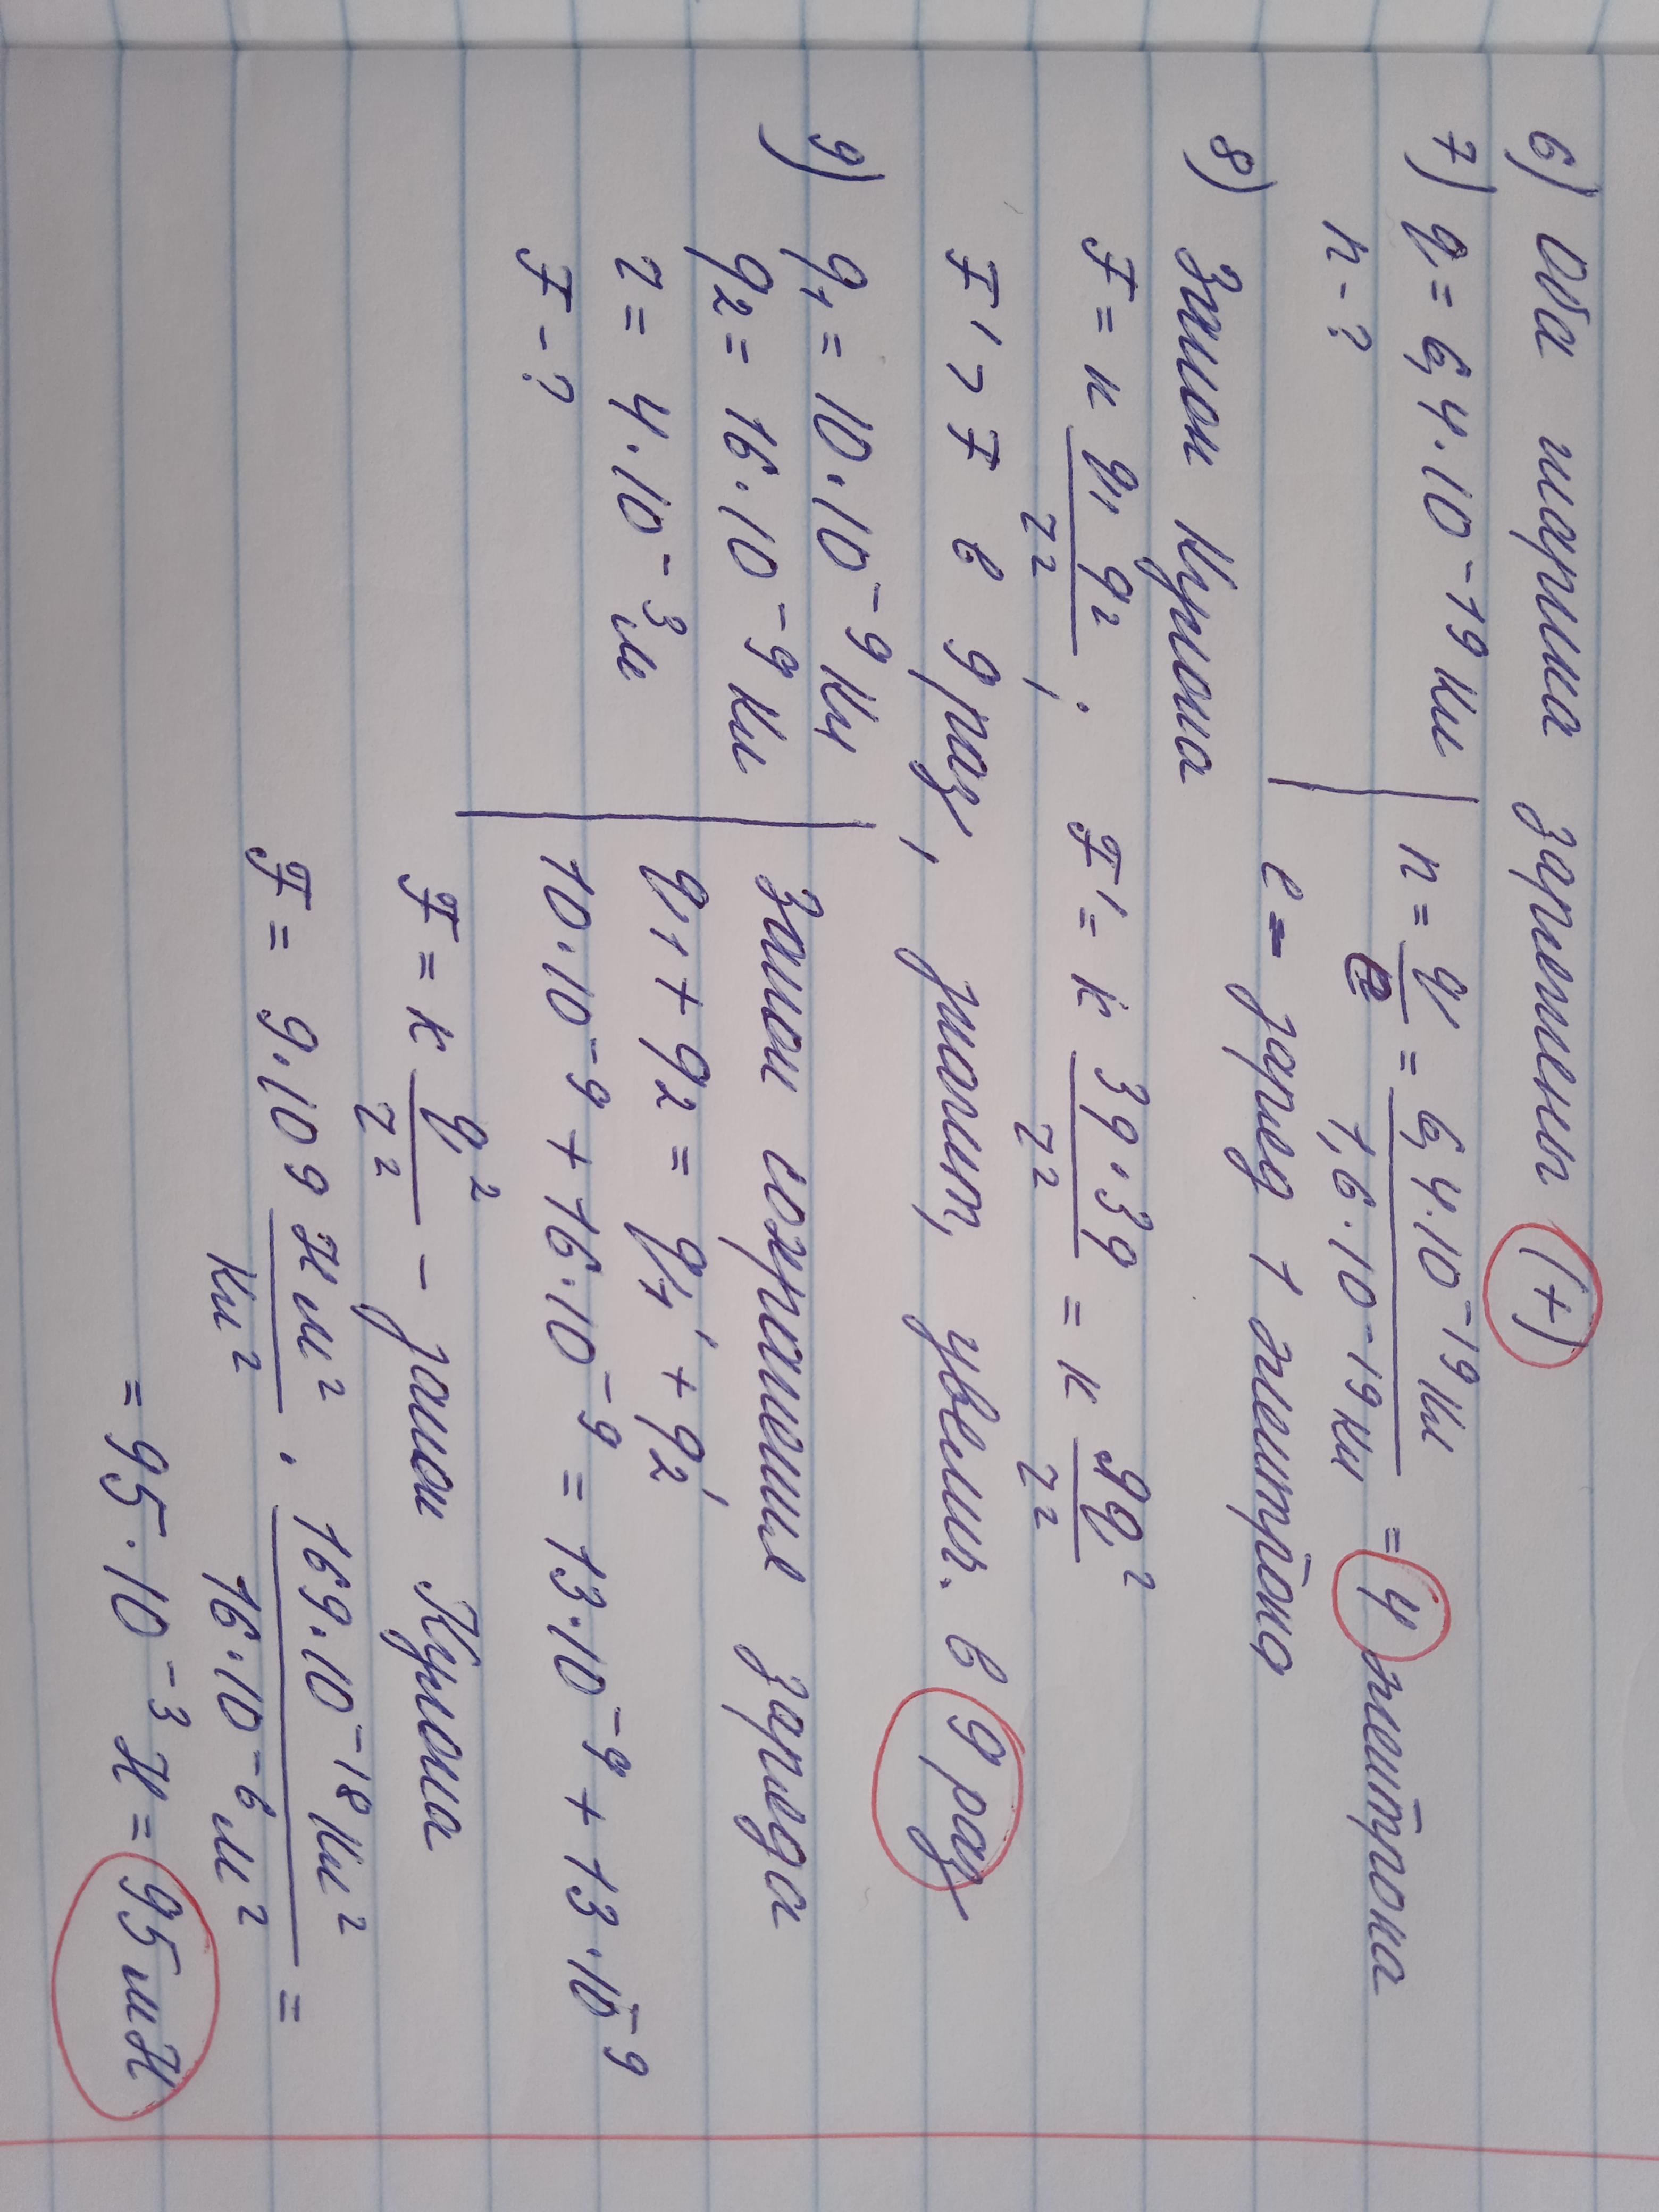 6) Оба шарика заряжены (+)
7) q = 6,4·10⁻¹⁹ Кл | n = q/e = 6,4·10⁻¹⁹ Кл / 1,6·10⁻¹⁹ Кл = 4 электрона
n - ? | e = заряд 1 электрона
8) Закон Кулона
F = к q₁ q₂ / r² ; F' = к 3q·3q / r² = к 9q² / r²
F' > F в 9 раз, значит, увелич. в 9 раз
9) q₁ = 10·10⁻⁹ Кл | Закон сохранения заряда
q₂ = 16·10⁻⁹ Кл | q₁ + q₂ = q₁' + q₂'
r = 4·10⁻³ м | 10·10⁻⁹ + 16·10⁻⁹ = 13·10⁻⁹ + 13·10⁻⁹
F - ?
F = к q²/r² - закон Кулона
F = 9·10⁹ Н м²/Кл² · 169·10⁻¹⁸ Кл² / 16·10⁻⁶ м² =
= 95·10⁻³ Н = 95 мН